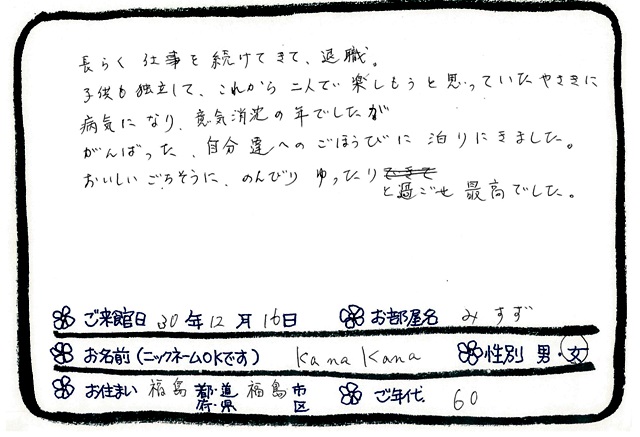 長らく仕事を続けてきて、退職。
子供も独立して、これから二人で楽しもうと思っていたやさきに
病気になり、意気消沈の年でしたが
がんばった、自分達へのごほうびに泊りにきました。
おいしいごちそうに、のんびりゆったり
と過ごせ最高でした。
ご来館日 30年12月16日 お部屋名 みすず
お名前(ニックネームOKです) kana kana 性別 男・女
お住まい 福島 都・道 福島 市
府・県 区 ご年代 60